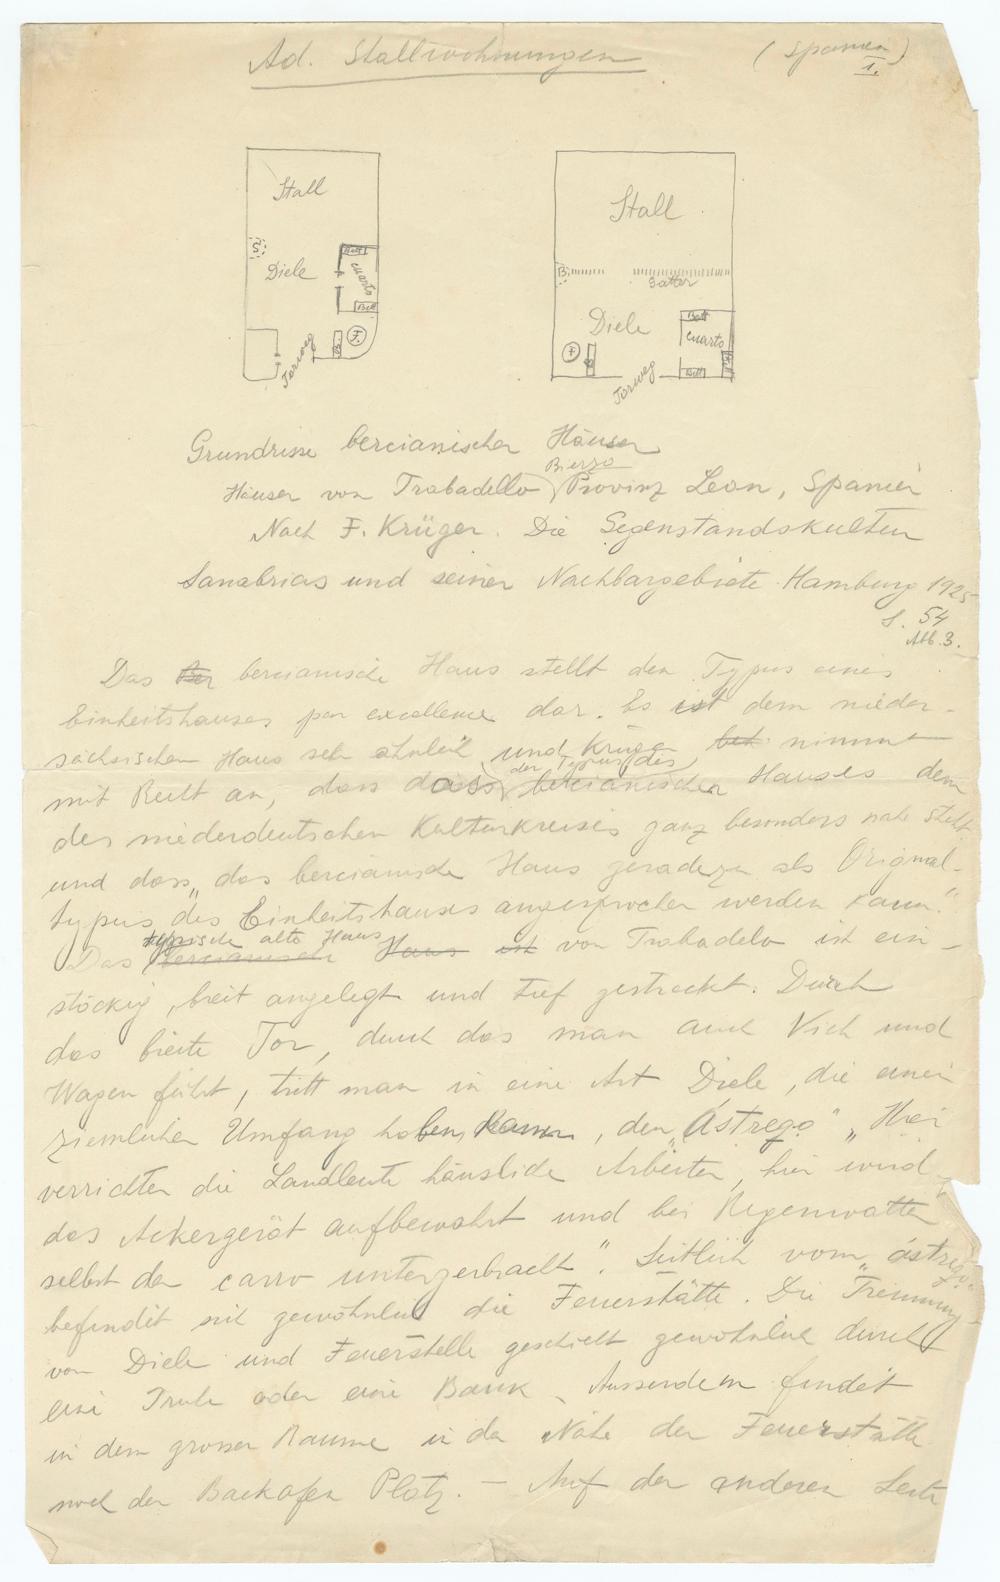 Ad. Stallwohnungen
(Spanien
I.)
Stall
S
Diele
Bett
cuarto
Bett
F.
B
Torweg
Stall
B
Gatter
Diele
Bett
cuarto
F
B
Bett
Torweg
Grundrisse bercianischer Häuser
Bierzo
Häuser von Trabadello, Provinz Leon, Spanien
Nach F. Krüger. Die Gegenstandskultur
Sanabrias und seiner Nachbargebiete. Hamburg 1925
S. 54
Abb. 3.
Das bercianische Haus stellt den Typus eines
Einheitshauses par excellence dar. Es ist dem nieder-
sächsischen Haus sehr ähnlich und Krüger nimmt
der Typus des
mit Recht an, dass dass bercianischen Hauses dem
des niederdeutschen Kulturkreises ganz besonders nahe steht
und dass „das bercianische Haus geradezu als Original-
typus des Einheitshauses angesprochen werden kann."
typische alte Haus
Das bercianische Haus ist von Trabadelo ist ein-
stöckig, breit angelegt und tief gestreckt. Durch
das breite Tor, durch das man auch Vieh und
Wagen führt, tritt man in eine Art Diele, die einen
ziemlichen Umfang haben kann, den „Ástrego" „Hier
verrichten die Landleute häusliche Arbeiten, hier wird
das Ackergerät aufbewahrt und bei Regenwetter
selbst der carro untergebracht". Seitlich vom „ástrego"
befindet sich gewöhnlich die Feuerstätte. Die Trennung
von Diele und Feuerstelle geschieht gewöhnlich durch
eine Truhe oder eine Bank. Ausserdem findet
in dem grossen Raume in der Nähe der Feuerstätte
noch der Backofen Platz. — Auf der anderen Seite